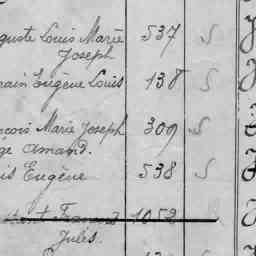 guste Louis Marie 537 S
Joseph
rain Eugène Louis 138 S
nçois Marie Joseph 309 S
ge Amand.
is Eugène 538 S
1052
Jules.